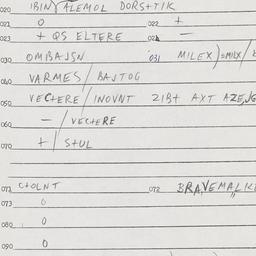 020 IBINY ALEMOL DORSTTIK
021 0 022 +
023 + QS ELTERE 024 -
030 OMBAJSN 031 MILEX)=MILX/
040 VARMES / BAJTOG
050 VECTERE / INOVNT ZIBT AYT AZE,
060 - / VECTERE
070 + / STUL
071 CTOLNT 072 BRAVEMALIK
073 0
080 0
090 0